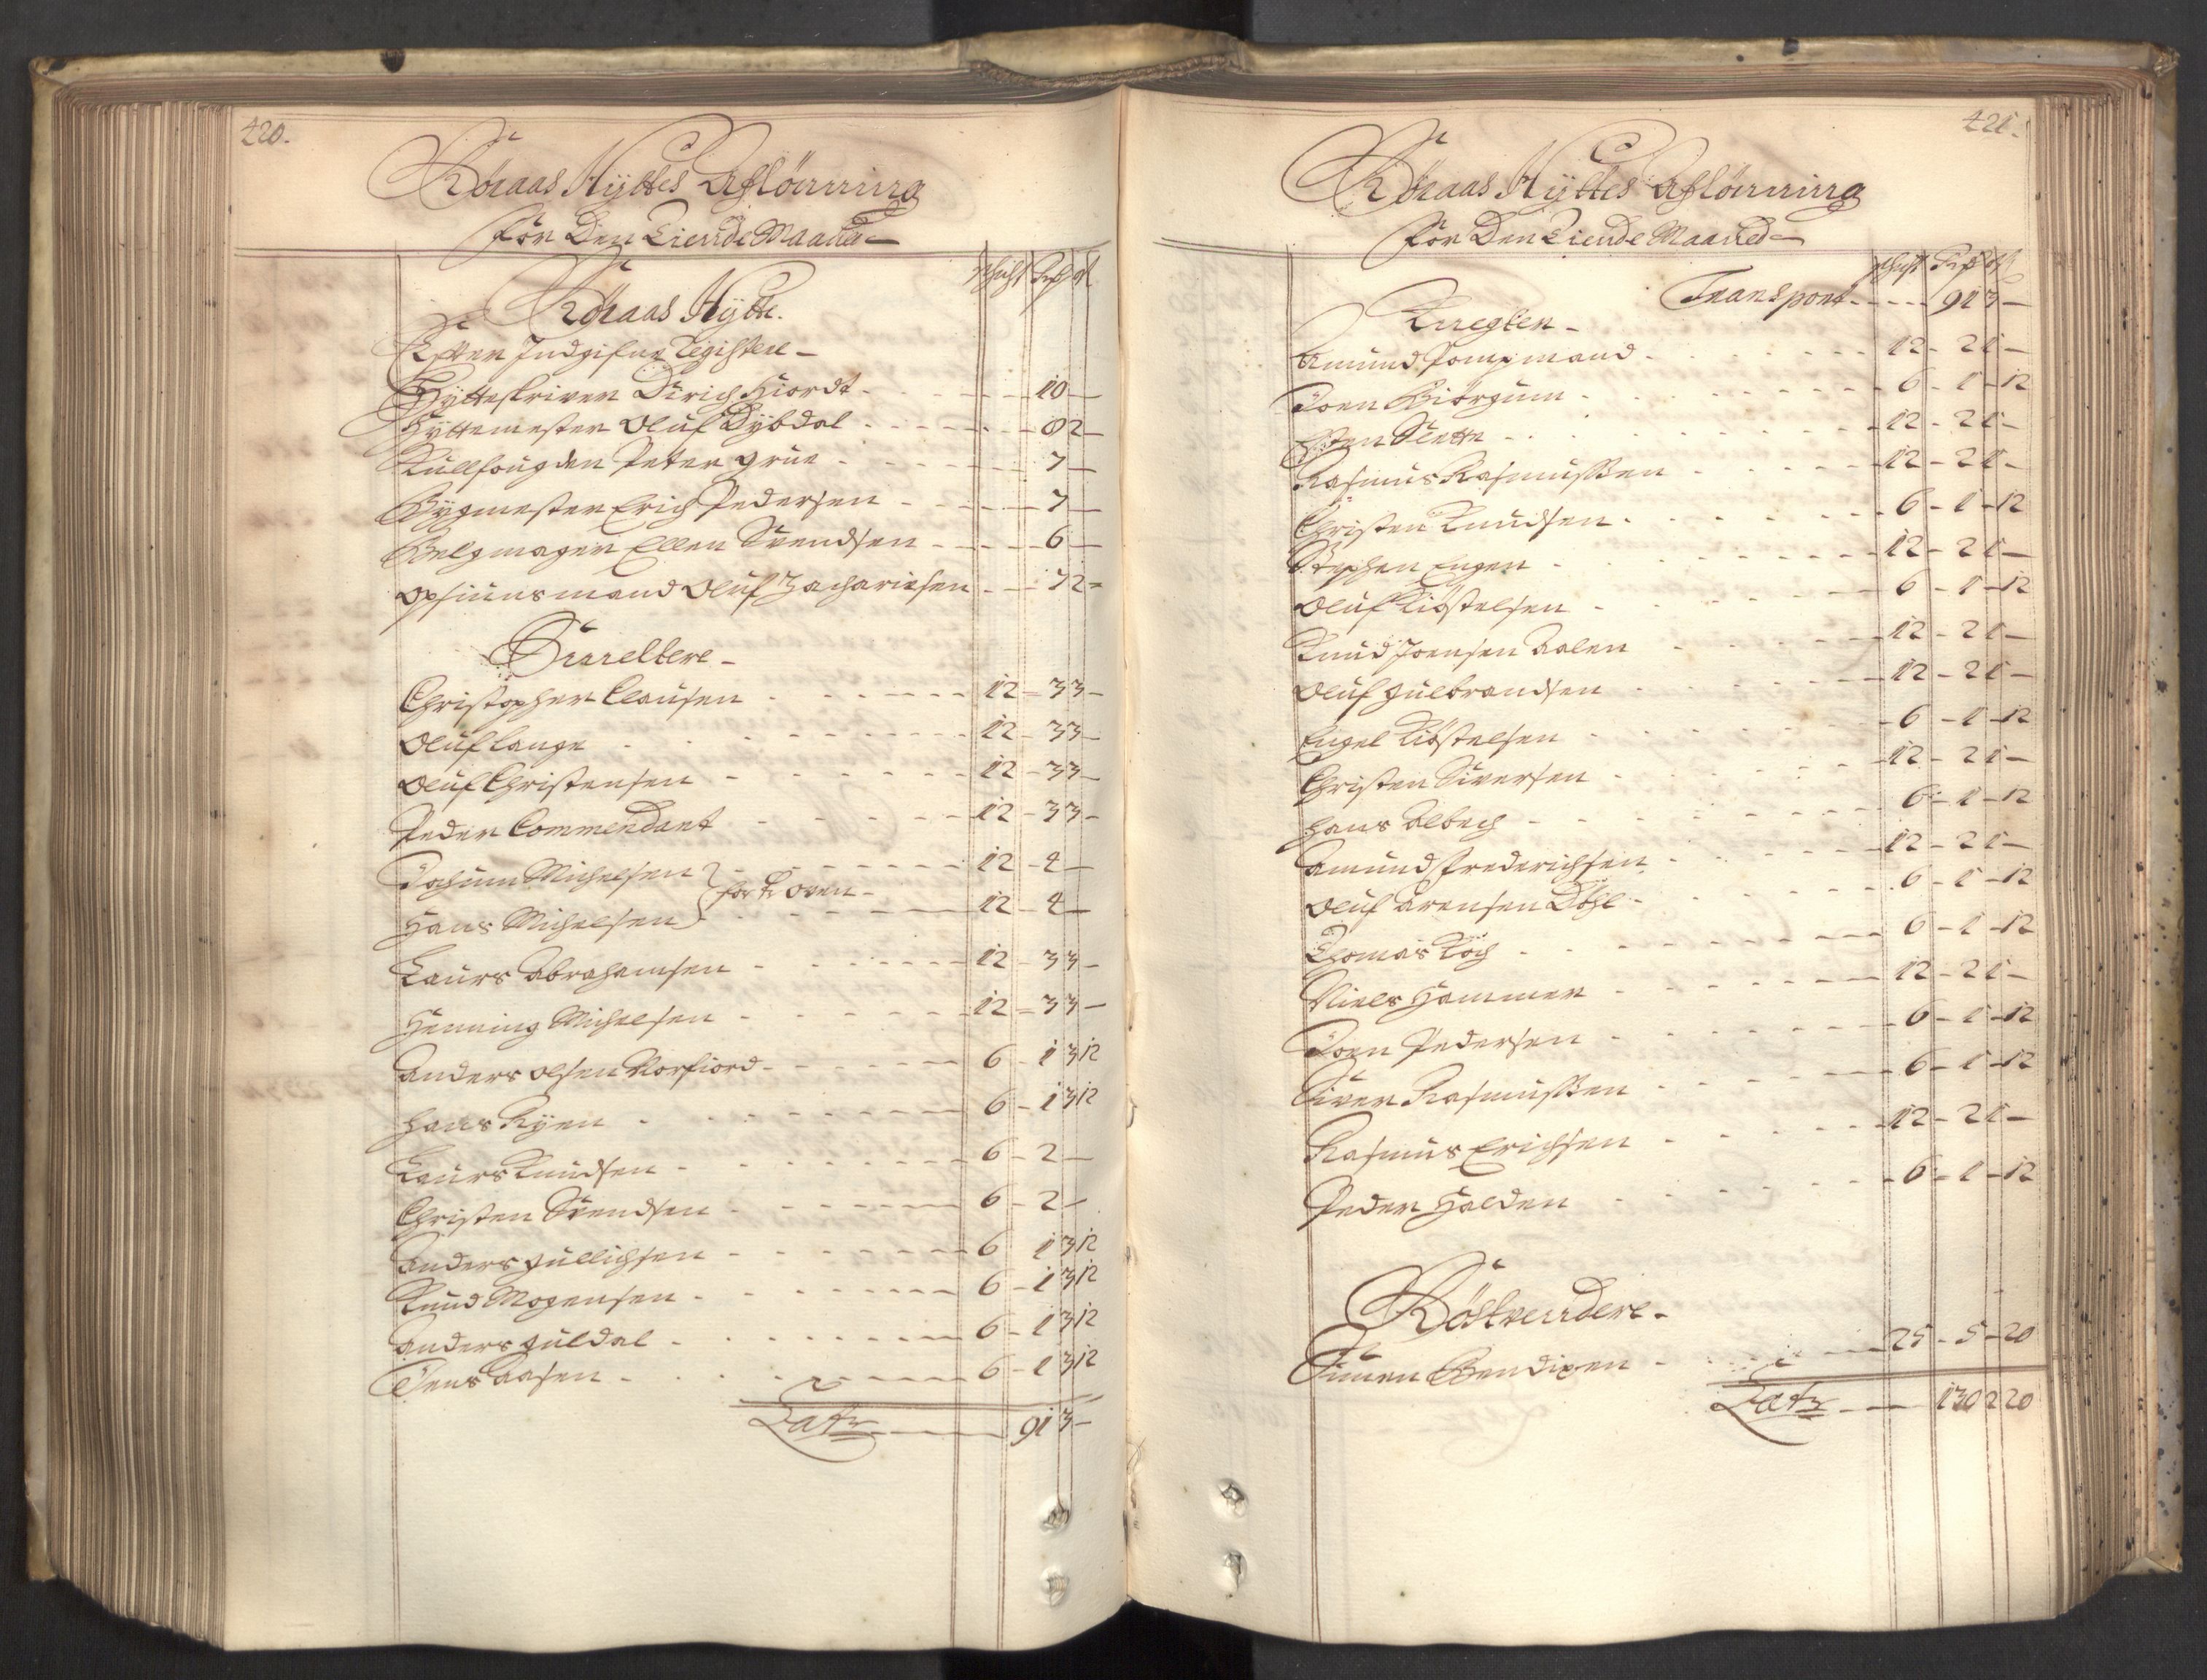 420.
Røraas Hyttes Aflønning
for Den Tiende Maaned
Schicht Rdr ort ß
Røraas Hytte.
Efter Indgifne Register
Hytteskriver Dirich Hiordt - 10 -
Hyttemester Oluf Dybdal - 8 2 -
Kullfougden Peter Grue - 7 -
Bygmester Erich Pedersen - 7 -
Belgmager Ellen Svendsen - 6 -
Opsiunsmand Oluf Zachariesen - 7 2 -
Smeltere
Christopher Clausen - 12 - 3 3 -
Oluf Lange - 12 - 3 3 -
Oluf Christensen - 12 - 3 3 -
Peder Commendant - 12 - 3 3 -
Jochum Michelsen - 12 - 4 -
for Kr. oven
Hans Michelsen - 12 - 4 -
Laurs Abrahamsen - 12 - 3 3 -
Henning Michelsen - 12 - 3 3 -
Anders Olsen Norfiord - 6 - 1 3 12
Hans Ryen - 6 - 1 3 12
Laurs Knudsen - 6 - 2 -
Christen Svendsen - 6 - 2 -
Anders Gullichsen - 6 1 3 12
Knud Mogensen - 6 - 1 3 12
Anders Guldal - 6 - 1 3 12
Jens Aasen - 6 - 1 3 12
Latr - 91 3 -
421.
Røraas Hyttes Aflønning
for Den Tiende Maaned
Schicht Rdr ort ß
Transport - 91 3 -
Knegter
Amund Pompmand - 12 - 2 1 -
Joen Biörgum - 6 - 1 - 12
Esten Slette - 12 - 2 1 -
Rasmus Rasmussen - 12 - 2 1 -
Christen Knudsen - 6 - 1 - 12
Stephen Engen - 12 - 2 1 -
Oluf Kiöstelsen - 6 - 1 - 12
Knud Joensen Aalen - 12 - 2 1 -
Oluf Gulbrandsen - 12 - 2 1 -
Engel Kiöstelsen - 6 - 1 - 12
Christen Siversen - 12 - 2 1 -
Hans Albech - 6 - 1 - 12
Amund Frederichsen - 12 - 2 1 -
Oluf Arensen Döhl - 6 - 1 - 12
Thomas Koch - 6 - 1 - 12
Niels Hammer - 12 - 2 1 -
Joen Pedersen - 6 - 1 - 12
Siver Rasmussen - 6 - 1 - 12
Rasmus Erichsen - 12 - 2 1 -
Peder Halden - 6 - 1 - 12
Röstvendere
Simen Bendixen - 25 - 5 - 20
Latr - 130 2 20